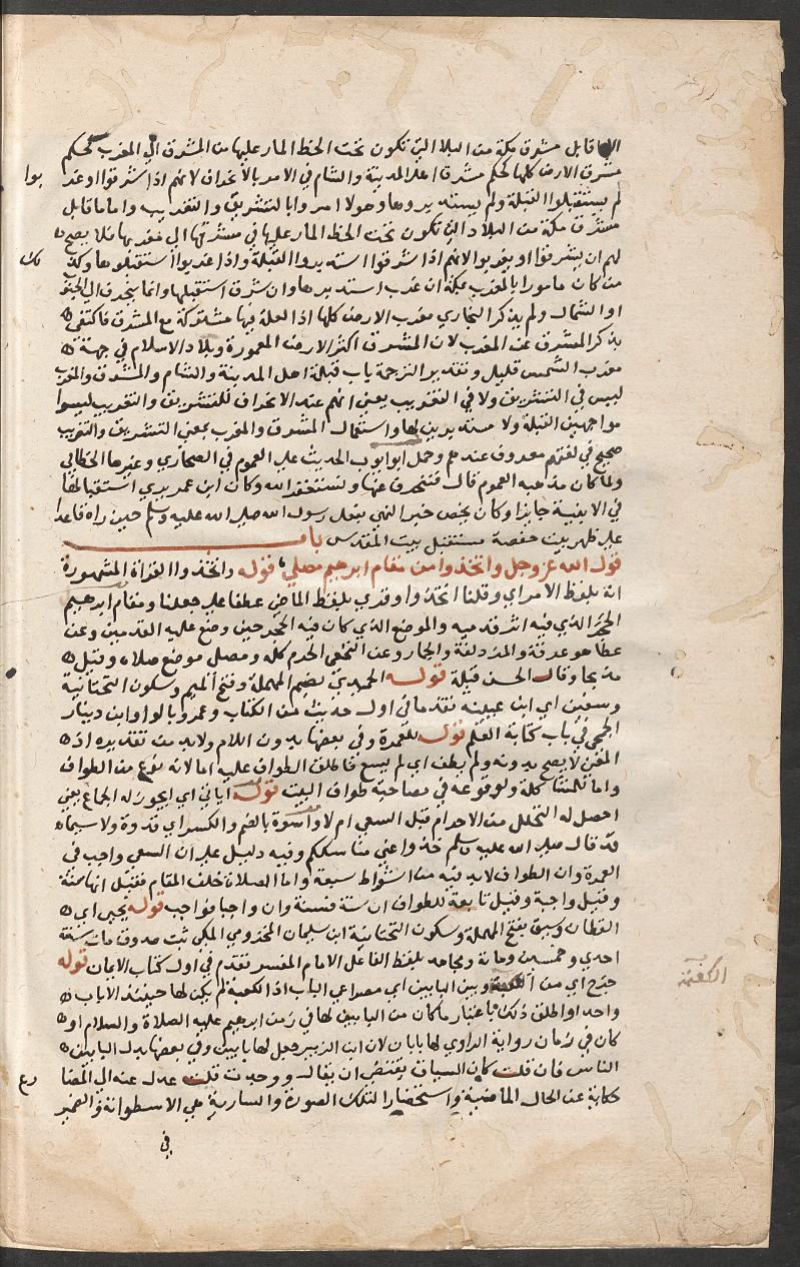 الا ما قابل مشرق مكة من البلاد التي تكون تحت الخط المار عليها من المشرق الي المغرب فحكم
مشرق الارض كلها كحكم مشرق اهل المدينة والشام في الامر بالانحراف لانهم اذا شرقوا او غر
بوا
لم يستقبلوا القبلة ولم يستدبروها وهولا امروا بالتشريق والتغريب واما ما قابل
مشرق مكة من البلاد التي تكون تحت الخط المار عليها في مشرقها الي مغربها فلا يصح
لهم ان يشرقوا او يغربوا لانهم اذا شرقوا استدبروا القبلة واذا غربوا استقبلوها وكذ
لك
من كان مامورا بالمغرب مكة ان غرب استدبرها وان شرق استقبلها وانما ينحرف الي الجنو
او الشمال ولم يذكر البخاري مغرب الارض كلها اذ العلة فيها مشتركة مع المشرق فاكتفي
بذكر المشرق عن المغرب لان المشرق اكثر الارض المعمورة وبلاد الاسلام في جهة
مغرب الشمس قليل وتقدير الترجمة باب قبلة اهل المدينة والشام والمشرق والمغرب
ليس في التشريق ولا في التغريب يعني انهم عند الانحراف للتشريق والتغريب ليسوا
مواجهين القبلة ولا مستدبرين لها واستعمال المشرق والمغرب بمعني التشريق والتغريب
صحيح في لغتهم معروف عندهم وحمل ابو ايوب الحديث علي العموم في الصحاري وغيرها الخطابي
ولما كان مذهبه العموم قال فننحرف عنها ونستغفر الله وكان ابن عمر يري استقبالها
في الابنية جايزا وكان يخص خبر النهي بفعل رسول الله صلي الله عليه وسلم حين راه قاعدا
علي ظهر بيت حفصة مستقبل بيت المقدس باب
قول الله عز وجل واتخذوا من مقام ابرهيم مصلي قوله واتخذوا القراة المشهورة
انه بلفظ الامر اي وقلنا اتخذوا وقري بلفظ الماضي عطفا علي جعلنا ومقام ابرهيم
الحجر الذي فيه اثر قدميه والموضع الذي كان فيه الحجر حين وضع عليه القدمين وعن
عطا هو عرفة والمزدلفة والجمار وعن النخعي الحرم كله ومصلي موضع صلاة وقيل
مدعا وقال الحسن قبلة قوله الحميدي بضم المهملة وفتح الميم وسكون التحتانية
وسفين اي ابن عيينه تقدما في اول حديث من الكتاب وعمرو بالواو ابن دينار
الجمحي في باب كتابة العلم قوله للعمرة وفي بعضها بدون اللام ولابد من تقديره اذ
المعني لا يصح بدونه ولم يطف اي لم يسع فاطلق الطواف عليه اما لانه نوع من الطواف
واما للمشاكلة ولوقوعه في مصاحبة طواف البيت قوله اياتي اي ايجوز له الجماع يعني
احصل له التحلل من الاحرام قبل السعي ام لا واسوة بالضم والكسر اي قدوة ولا سيما
قد قال صلي الله عليه وسلم خذوا عني مناسككم وفيه دليل علي ان السعي واجب في
العمرة وان الطواف لابد فيه من اشواط سبعة واما الصلاة خلف المقام فقيل انها سنة
وقيل واجبة وقيل تابعة للطواف ان سنة فسنة وان واجبا فواجب قوله يحيي اي
القطان وسيف بفتح المهملة وسكون التحتانية ابن سليمان المخزومي المكي ثبت صدوق مات سنة
احدي وخمسين وماية ومجاهد بلفظ الفاعل الامام المفسر تقدم في اول كتاب الايمان قوله
خرج اي من الكعبة وبين البابين اي مصراعي الباب اذ الكعبة لم يكن لها حينئذ الا باب
الكعبة
واحد او اطلق ذلك باعتبار ما كان من البابين لها في زمن ابرهيم عليه الصلاة والسلام او
كان في زمان رواية الراوي لها بابان لان ابن الزبير جعل لها بابين وفي بعضها بدل البابين
الناس فان قلت كان السياق يقتضي ان يقال ووجدت قلت عدل عنه الي المضا
رع
حكاية عن الحال الماضية واستحضارا لتلك الصورة والسارية هي الاسطوانة والضمير
في